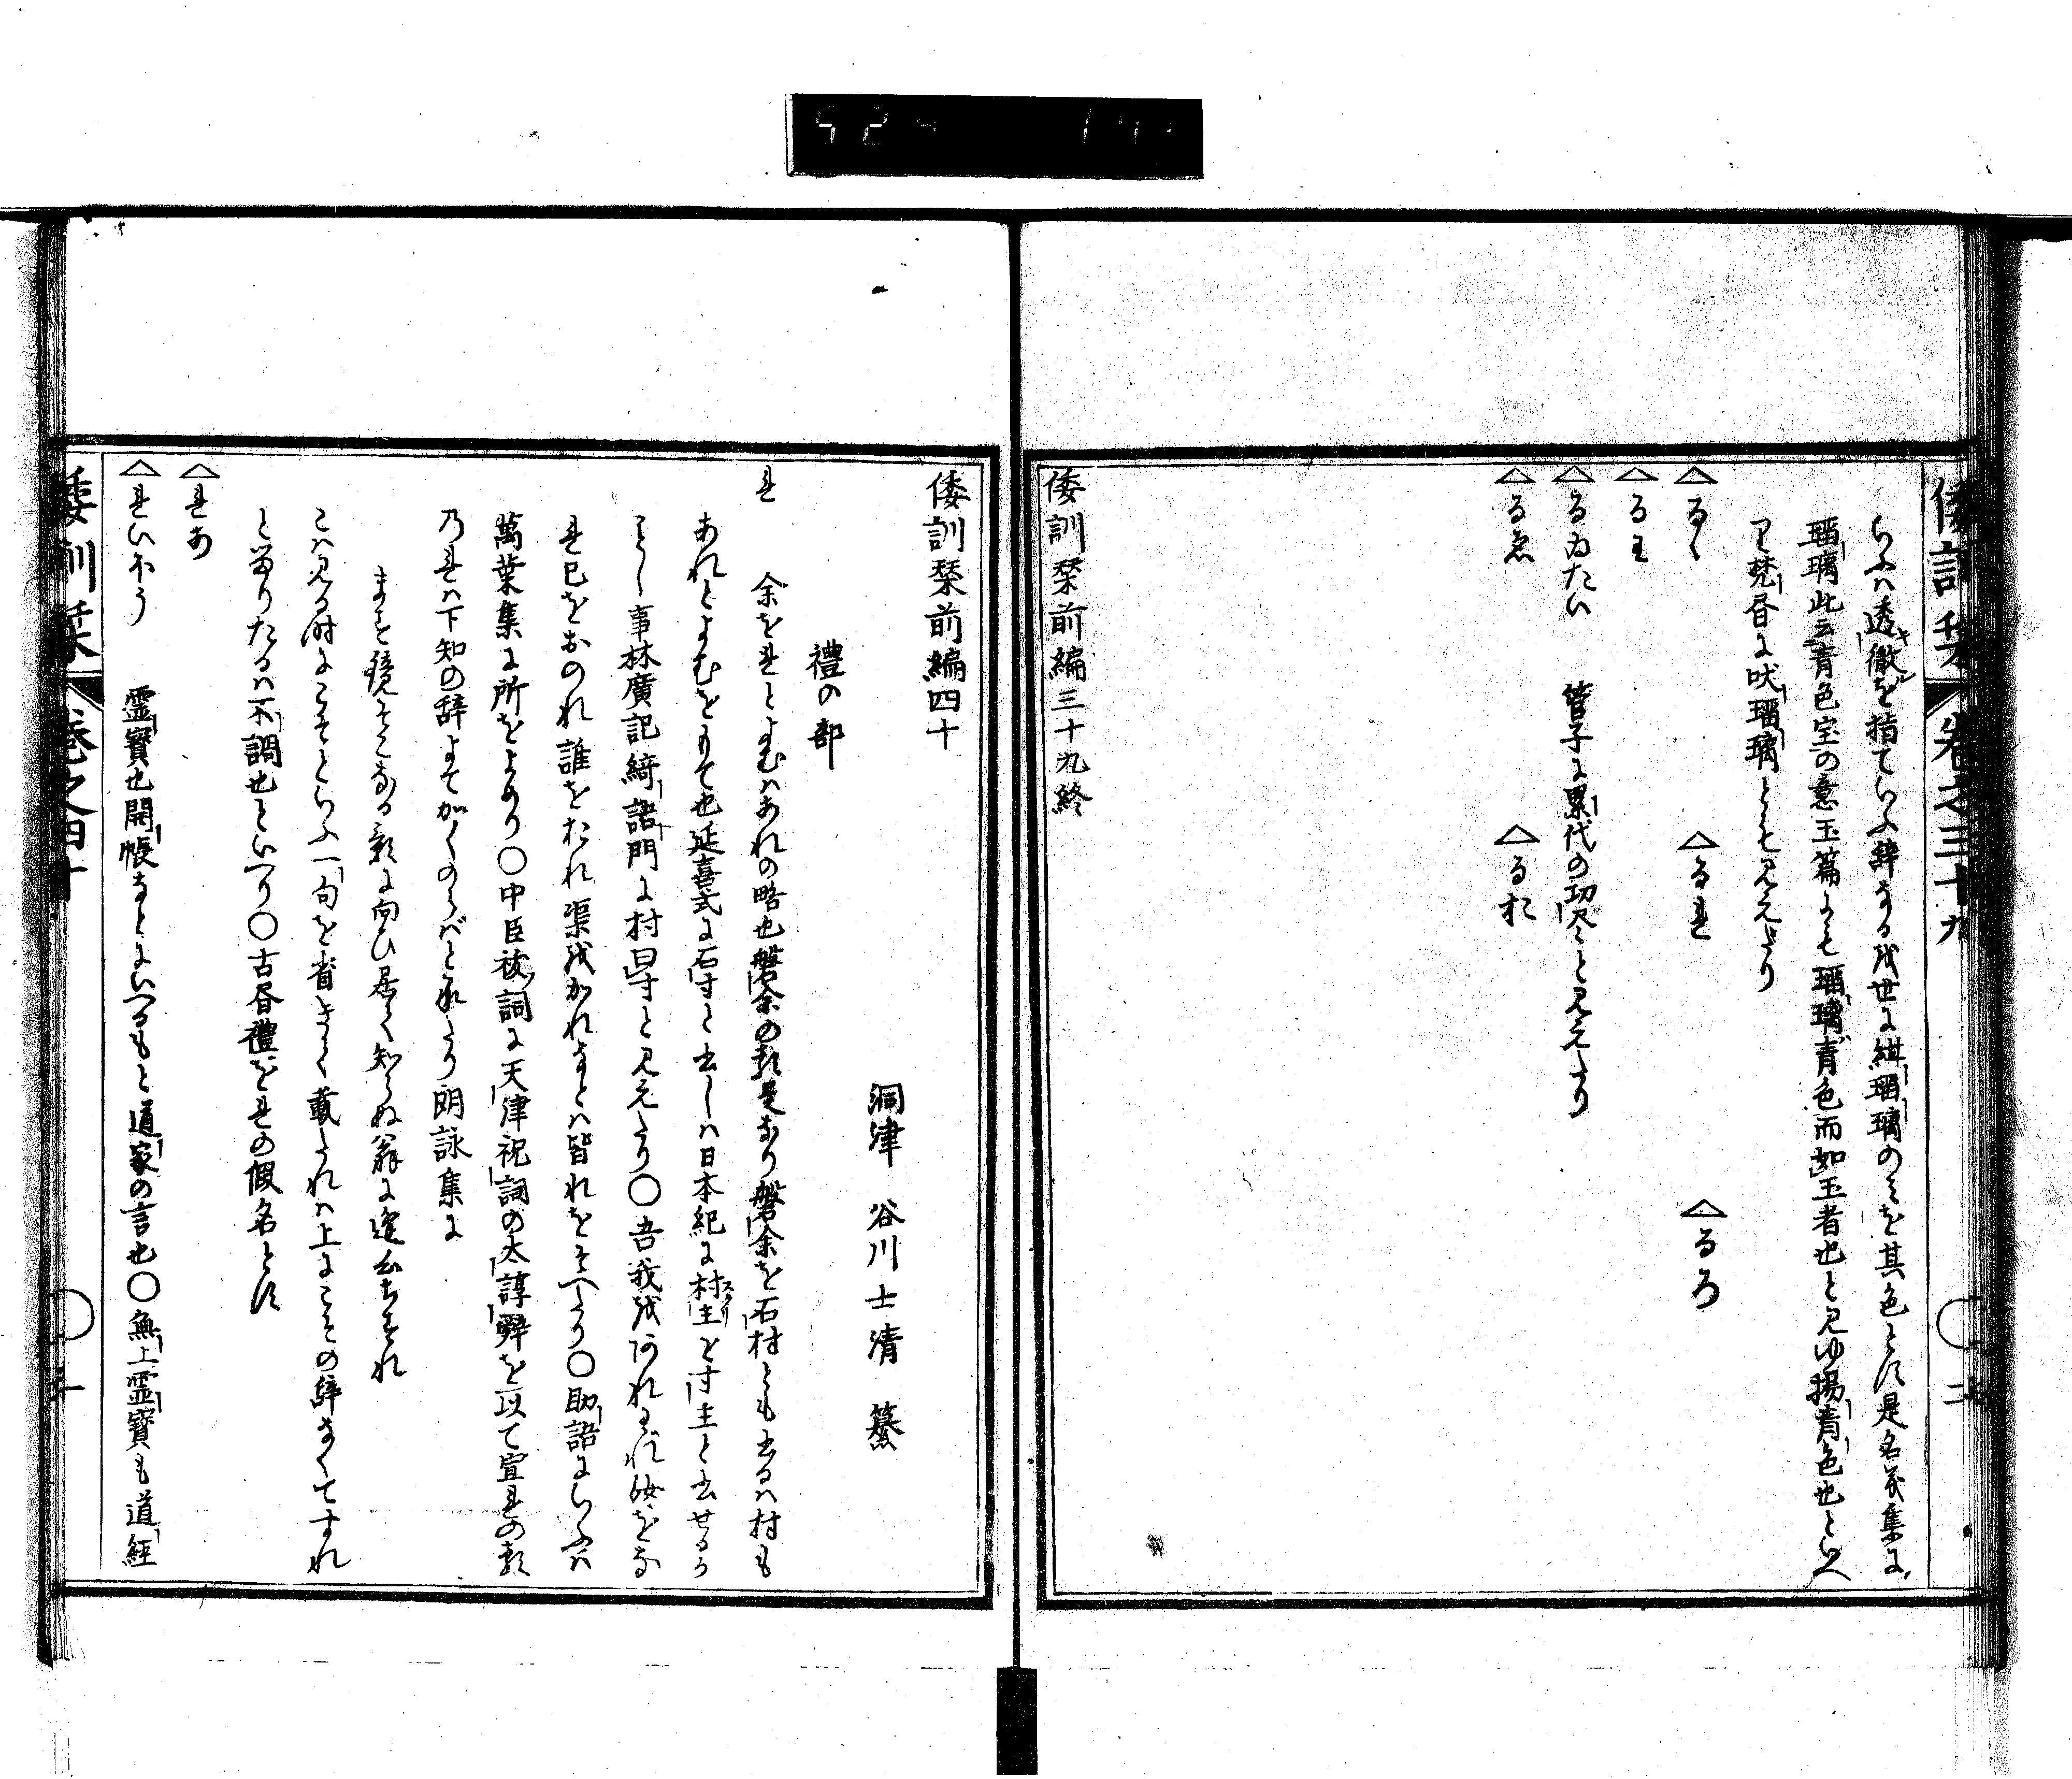 倭訓栞 卷之三十九
らふハ透徹を指ていふ辞なる後世に紺瑠璃のみを其色とす是名義集に
瑠璃此云青色宝の意玉篇にも瑠璃青色而如玉者也と見ゆ揚青色也といへ
り梵書に吠瑠璃とも見えたり
△るゝ △るれ △るろ
△るわ
△るゐたい 管子に累代の功尽と見えたり
△るゑ △るお
倭訓栞前編三十九終
倭訓栞前編四十
洞津 谷川士清 纂
禮の部
れ 余をれとよむハあれの略也磐余の類是なり磐余を石村とも書るハ村も
あれとよむをもて也延喜式に石寸と書しハ日本紀に村主を寸主と書せるか
ことし事林廣記綺語門に村曰寸と見えたり〇吾我をわれ汝をな
れ己をおのれ誰をたれ渠をかれなとハ皆れをそへたり〇助語にいふハ
萬葉集に所をよめり〇中臣祓詞に天津祝詞の太諄辞を以て宣れの類
乃れハ下知の辞よてかくのらバと承たり朗詠集に
ます鏡そこなる影に向ひ居て知らぬ翁に逢心ちすれ
こハ見る時にこそといふ一句を省きて載たれハ上にこその辞なくてすれ
と留りたるハ不調也といへり〇古書禮をれの假名とす
△れあ
△れいほう 霊寳也開帳なとにいへるもと道家の言也〇無上霊寳も道經
倭訓栞 卷之四十